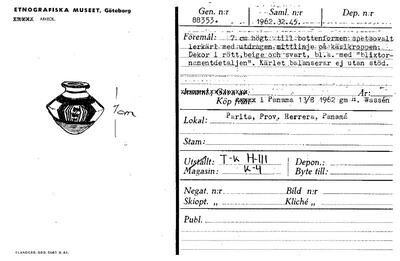 ETNOGRAFISKA MUSEET, Göteborg
ARKEOL.
7cm
Gen. n:r
88353.
Saml. n:r
1962.32.45.
Dep. n:r
Föremål: 7 cm högt till bottenformen spetsovalt
lerkärl med utdragen mittlinje på kärlkroppen.
Dekor i rött, beige och svart, bl.a. med "blixtor-
namentdetaljen". Kärlet balanserar ej utan stöd.
År:
Köp från i Panama 13/8 1962 gm H. Wassén
Lokal: Parita, Prov, Herrera, Panamá
Stam:
Utställt: T-K H-III
Depon.:
Magasin: K-4
Byte till:
Negat. n:r
Bild n:r
Skiopt. „
Kliché „
Publ.